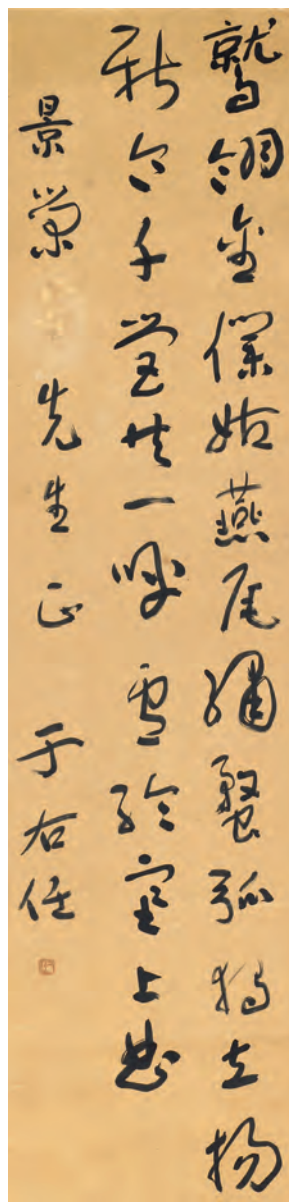 鷲翎金僕姑燕尾繡蝥弧獨立揚
新令千營共一呼雪於塞上曲
景榮先生正于右任